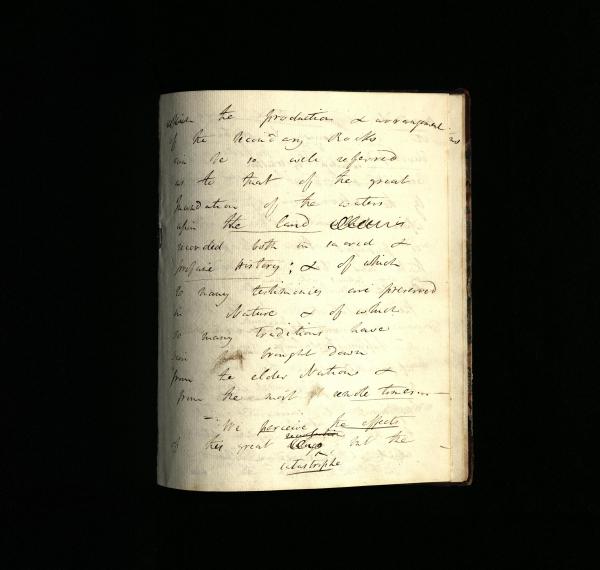 which the production & arrangement
of the Secondary Rocks
can be so well referred
as to that of the great
Inundation of the waters
upon the land
recorded both in sacred &
profane History; & of which
so many testimonies are preserved
in Nature & of which
so many traditions have
been brought down
from the elder Nations &
from the most remote times.—
We perceive the effects
of this great but the
revolution
catastrophe